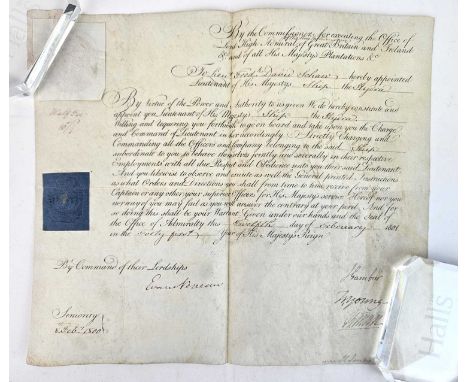 By the Commissioners for executing the Office of
Lord High Admiral of Great Britain and Ireland
&c and of all His Majesty's Plantations &c
To Lieut Fredk David hereby appointed
Lieutenant of His Majesty's Ship the
By Virtue of the Power and Authority to us given We do hereby constitute and
appoint you Lieutenant of His Majesty's Ship the
Willing and requiring you forthwith to go on board and take upon you the Charge
and Command of Lieutenant in her accordingly Strictly Charging and
Commanding all the Officers and Company belonging to the said Ship
subordinate to you to behave themselves jointly and severally in their respective
Employments with all due Respect and Obedience unto you their said Lieutenant
And you likewise to observe and execute as well the General printed Instructions
as what Orders and Directions you shall from time to time receive from your
Captain or any other your superior Officers for His Majesty's service Hereof nor you
nor any of you may fail as you will answer the contrary at your peril And for
so doing this shall be your Warrant Given under our hands and the Seal of
the Office of Admiralty this day of February 1801
in the Year of His Majesty's Reign
By Command of their Lordships
Evan Nepean
Seniority
Feby 1800
Young
Halls
Halls